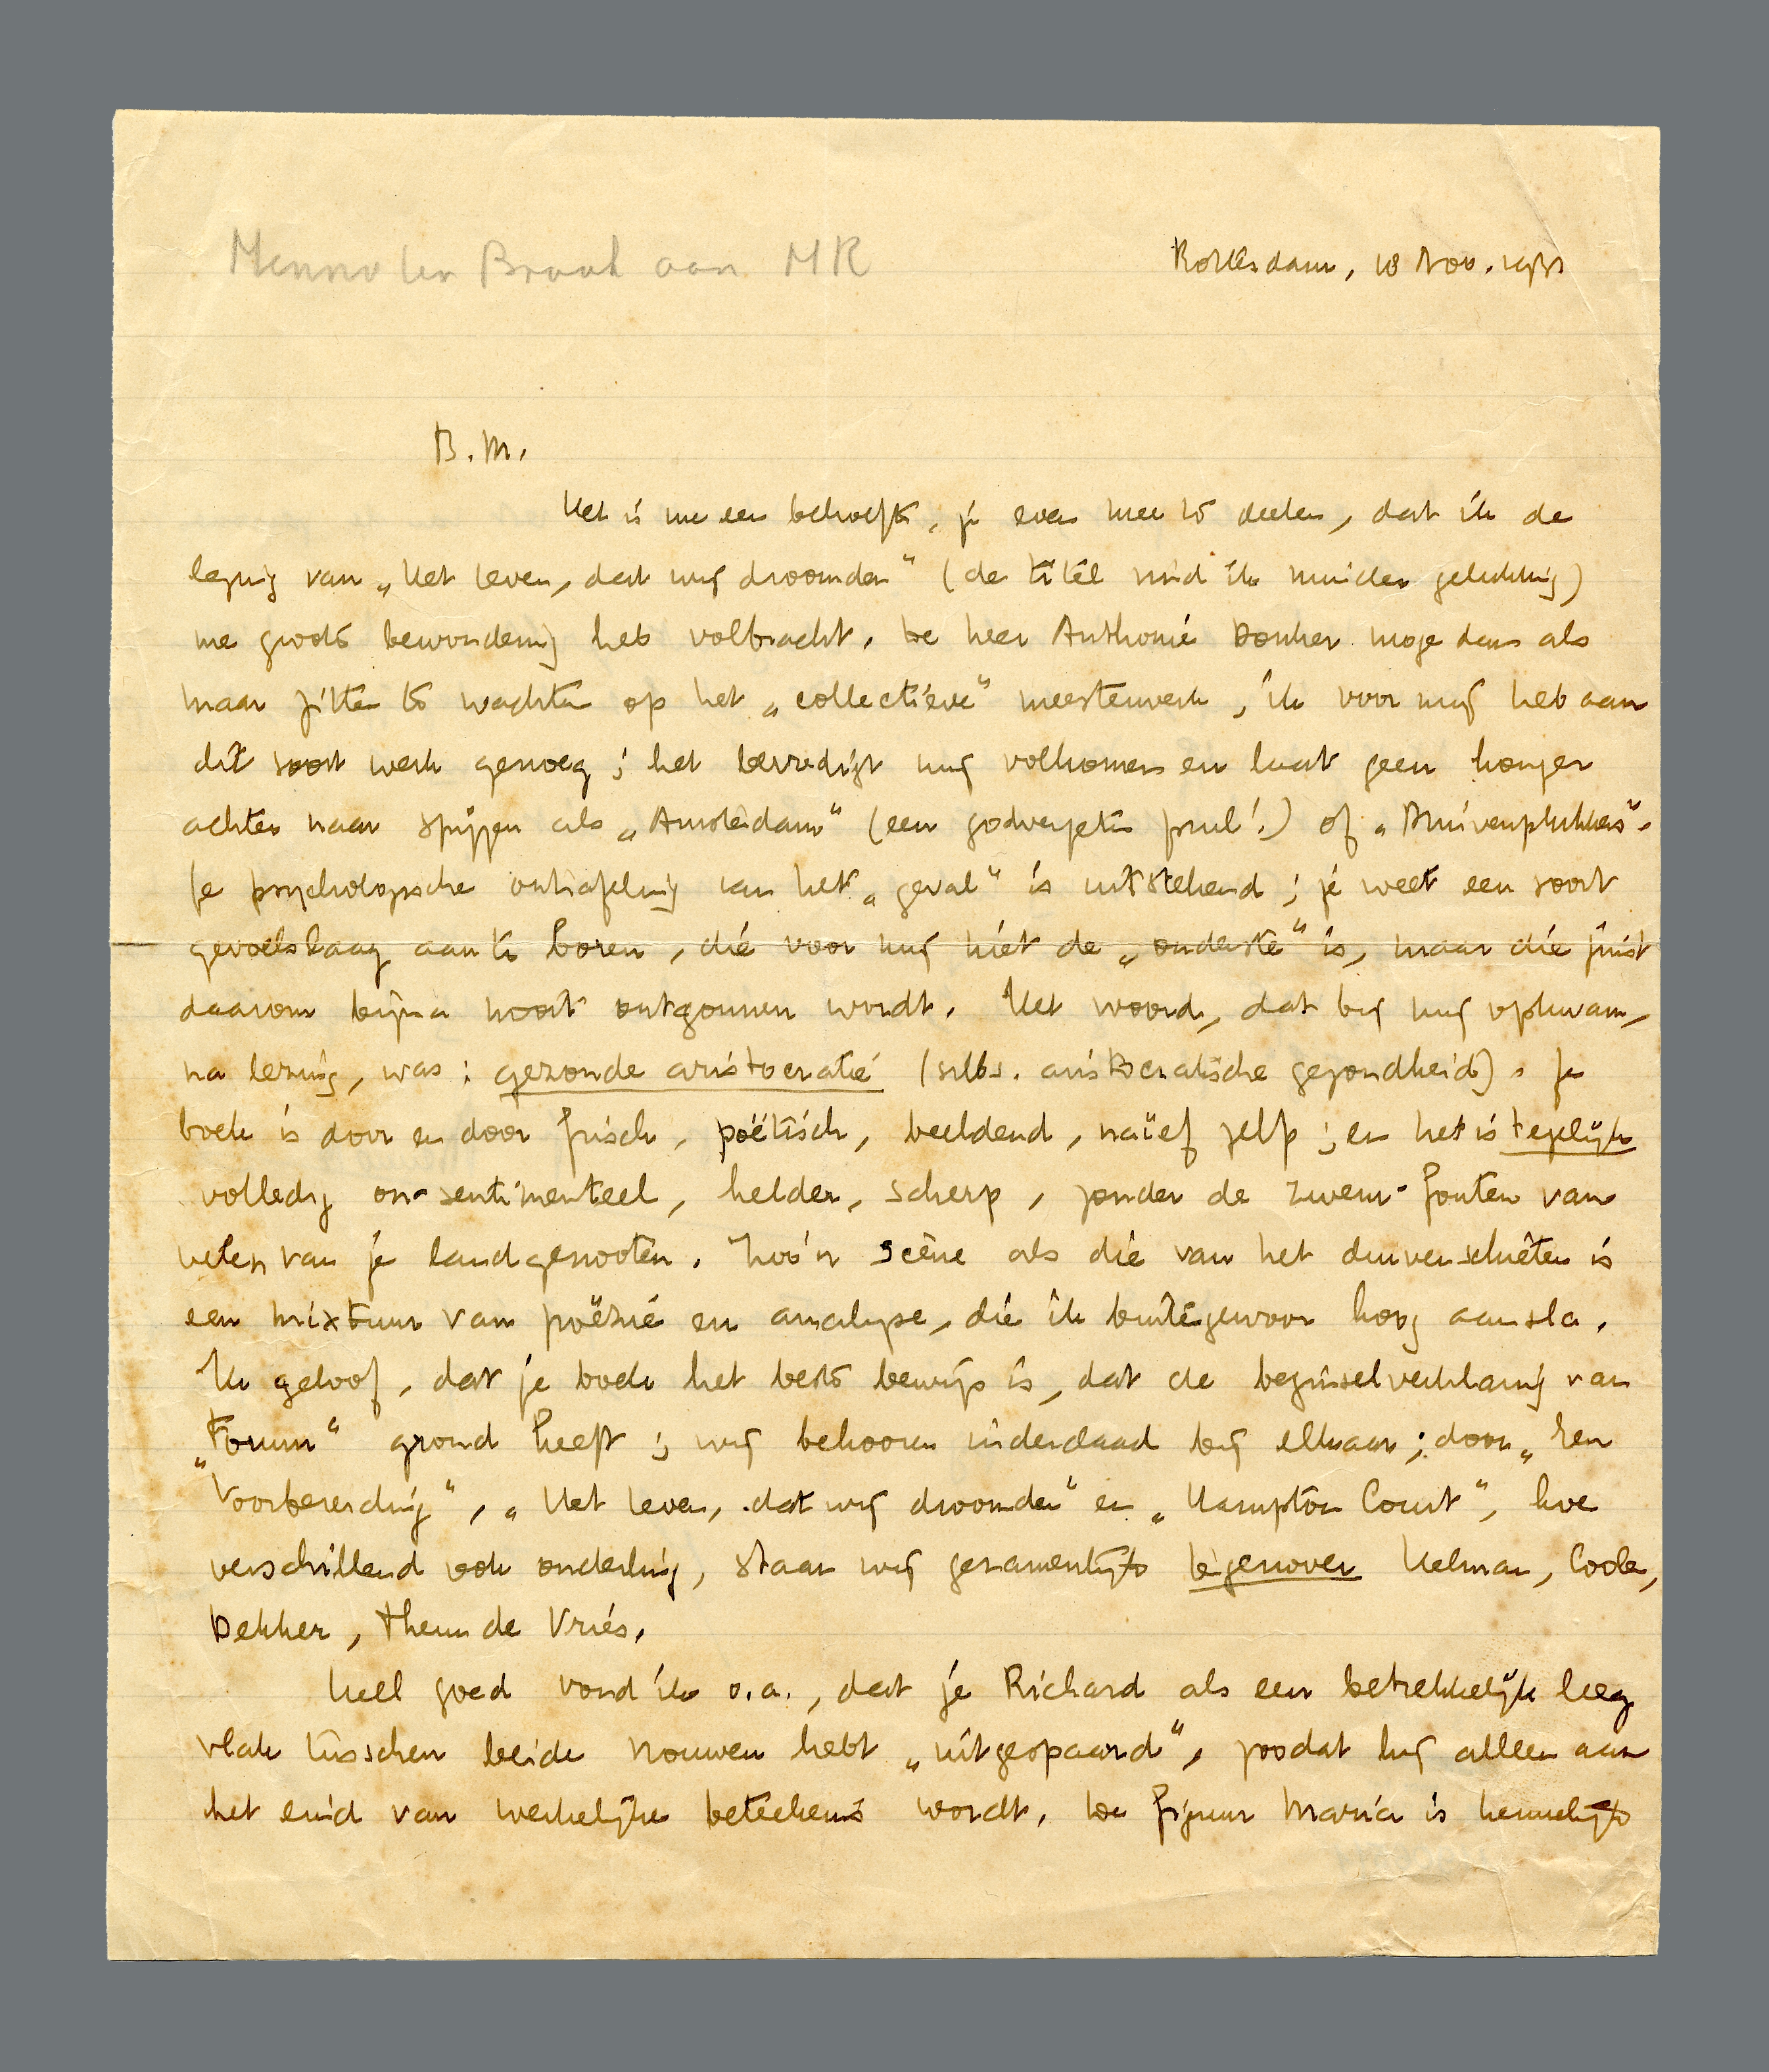 Menno ter Braak aan MR
Rotterdam, 18 Nov. 1931
B.M.
Het is me een behoefte, je even mee te deelen, dat ik de
lezing van „Het leven, dat wij droomden” (de titel vind ik minder gelukkig)
me groote bewondering heb volbracht. De heer Anthonie Donker moge dan als
maar zitten te wachten op het „collectieve” meesterwerk, ik voor mij heb aan
dit soort werk genoeg; het bevredigt mij volkomen en laat geen honger
achter naar spijzen als „Amsterdam” (een godvergeten prul!) of „Druivenplukkers”.
Je psychologische ontrafeling van het „geval” is uitstekend; je weet een soort
gevoelslaag aan te boren, die voor mij niet de „onderste” is, maar die juist
daarom bijna nooit ontgonnen wordt. Het woord, dat bij mij opkwam,
na lezing, was: gezonde aristocratie (subs. aristocratische gezondheid). Je
boek is door en door frisch, poëtisch, beeldend, naïef zelf; en het is tegelijk
volledig on-sentimenteel, helder, scherp, zonder de zwem-fouten van
velen van je landgenooten. Zoo'n scène als die van het duivenschieten is
een mixtuur van poëzie en analyse, die ik buitengewoon hoog aansla.
Ik geloof, dat je boek het beste bewijs is, dat de beginselverklaring van
„Forum” grond heeft; wij behooren inderdaad bij elkaar; door „Een
Voorbereiding”, „Het leven, dat wij droomden” en „Hampton Court”, hoe
verschillend ook onderling, staan wij gezamenlijk tegenover Helman, Coolen,
Dekker, Theun de Vries.
Heel goed vond ik o.a., dat je Richard als een betrekkelijk leeg
vlak tusschen beide vrouwen hebt „uitgespaard”, zoodat hij alleen aan
het eind van werkelijke beteekenis wordt. De figuur Maria is kennelijk